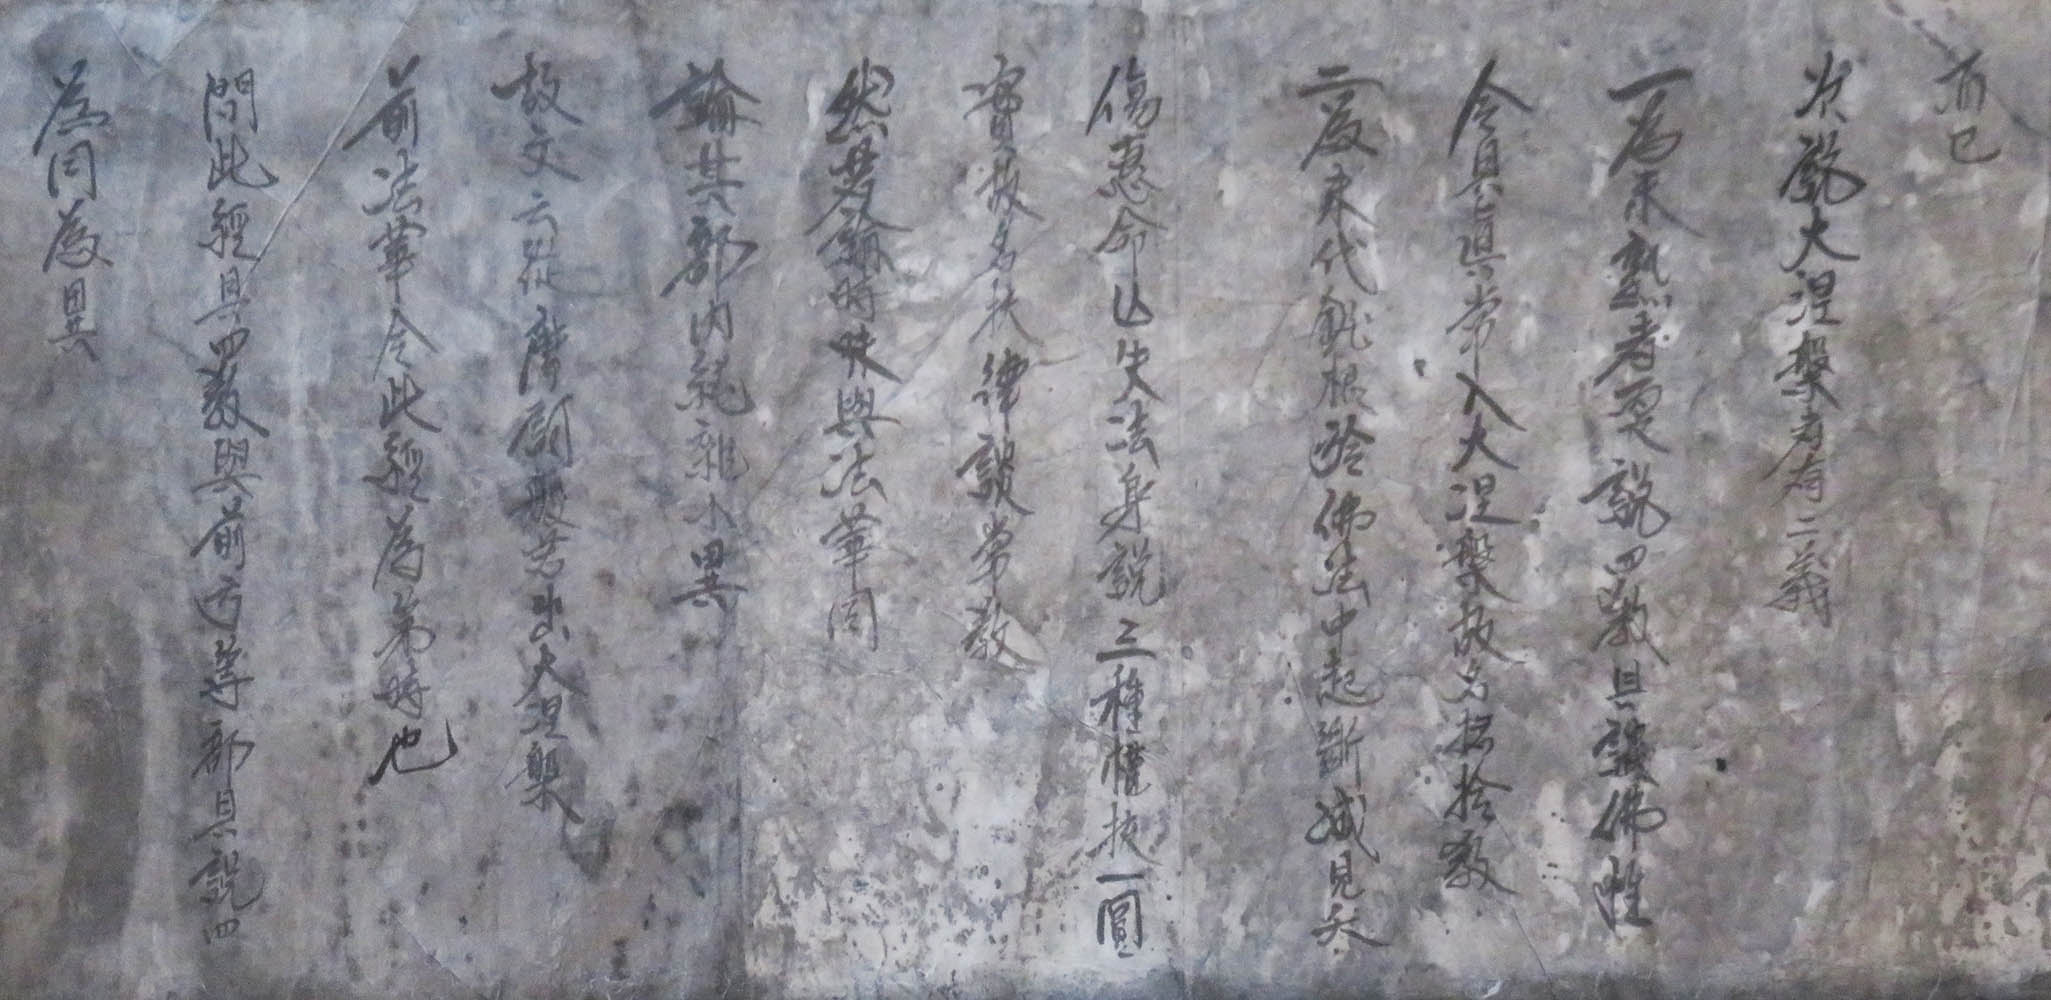 而已
次說大涅槃者有二義
一為未熟者更說四教具談佛性
令具真常入大涅槃故名捃拾教
二為末代鈍根於佛法中起斷滅見夭
傷惠命亡失法身說三種權扶一圓
實故名扶律談常教
然若論時味與法華同
論其部內純雜小異
故文云從摩訶般若出大涅槃
前法華合此經為第時也
問此經具四教與前方等部具說四
為同為異